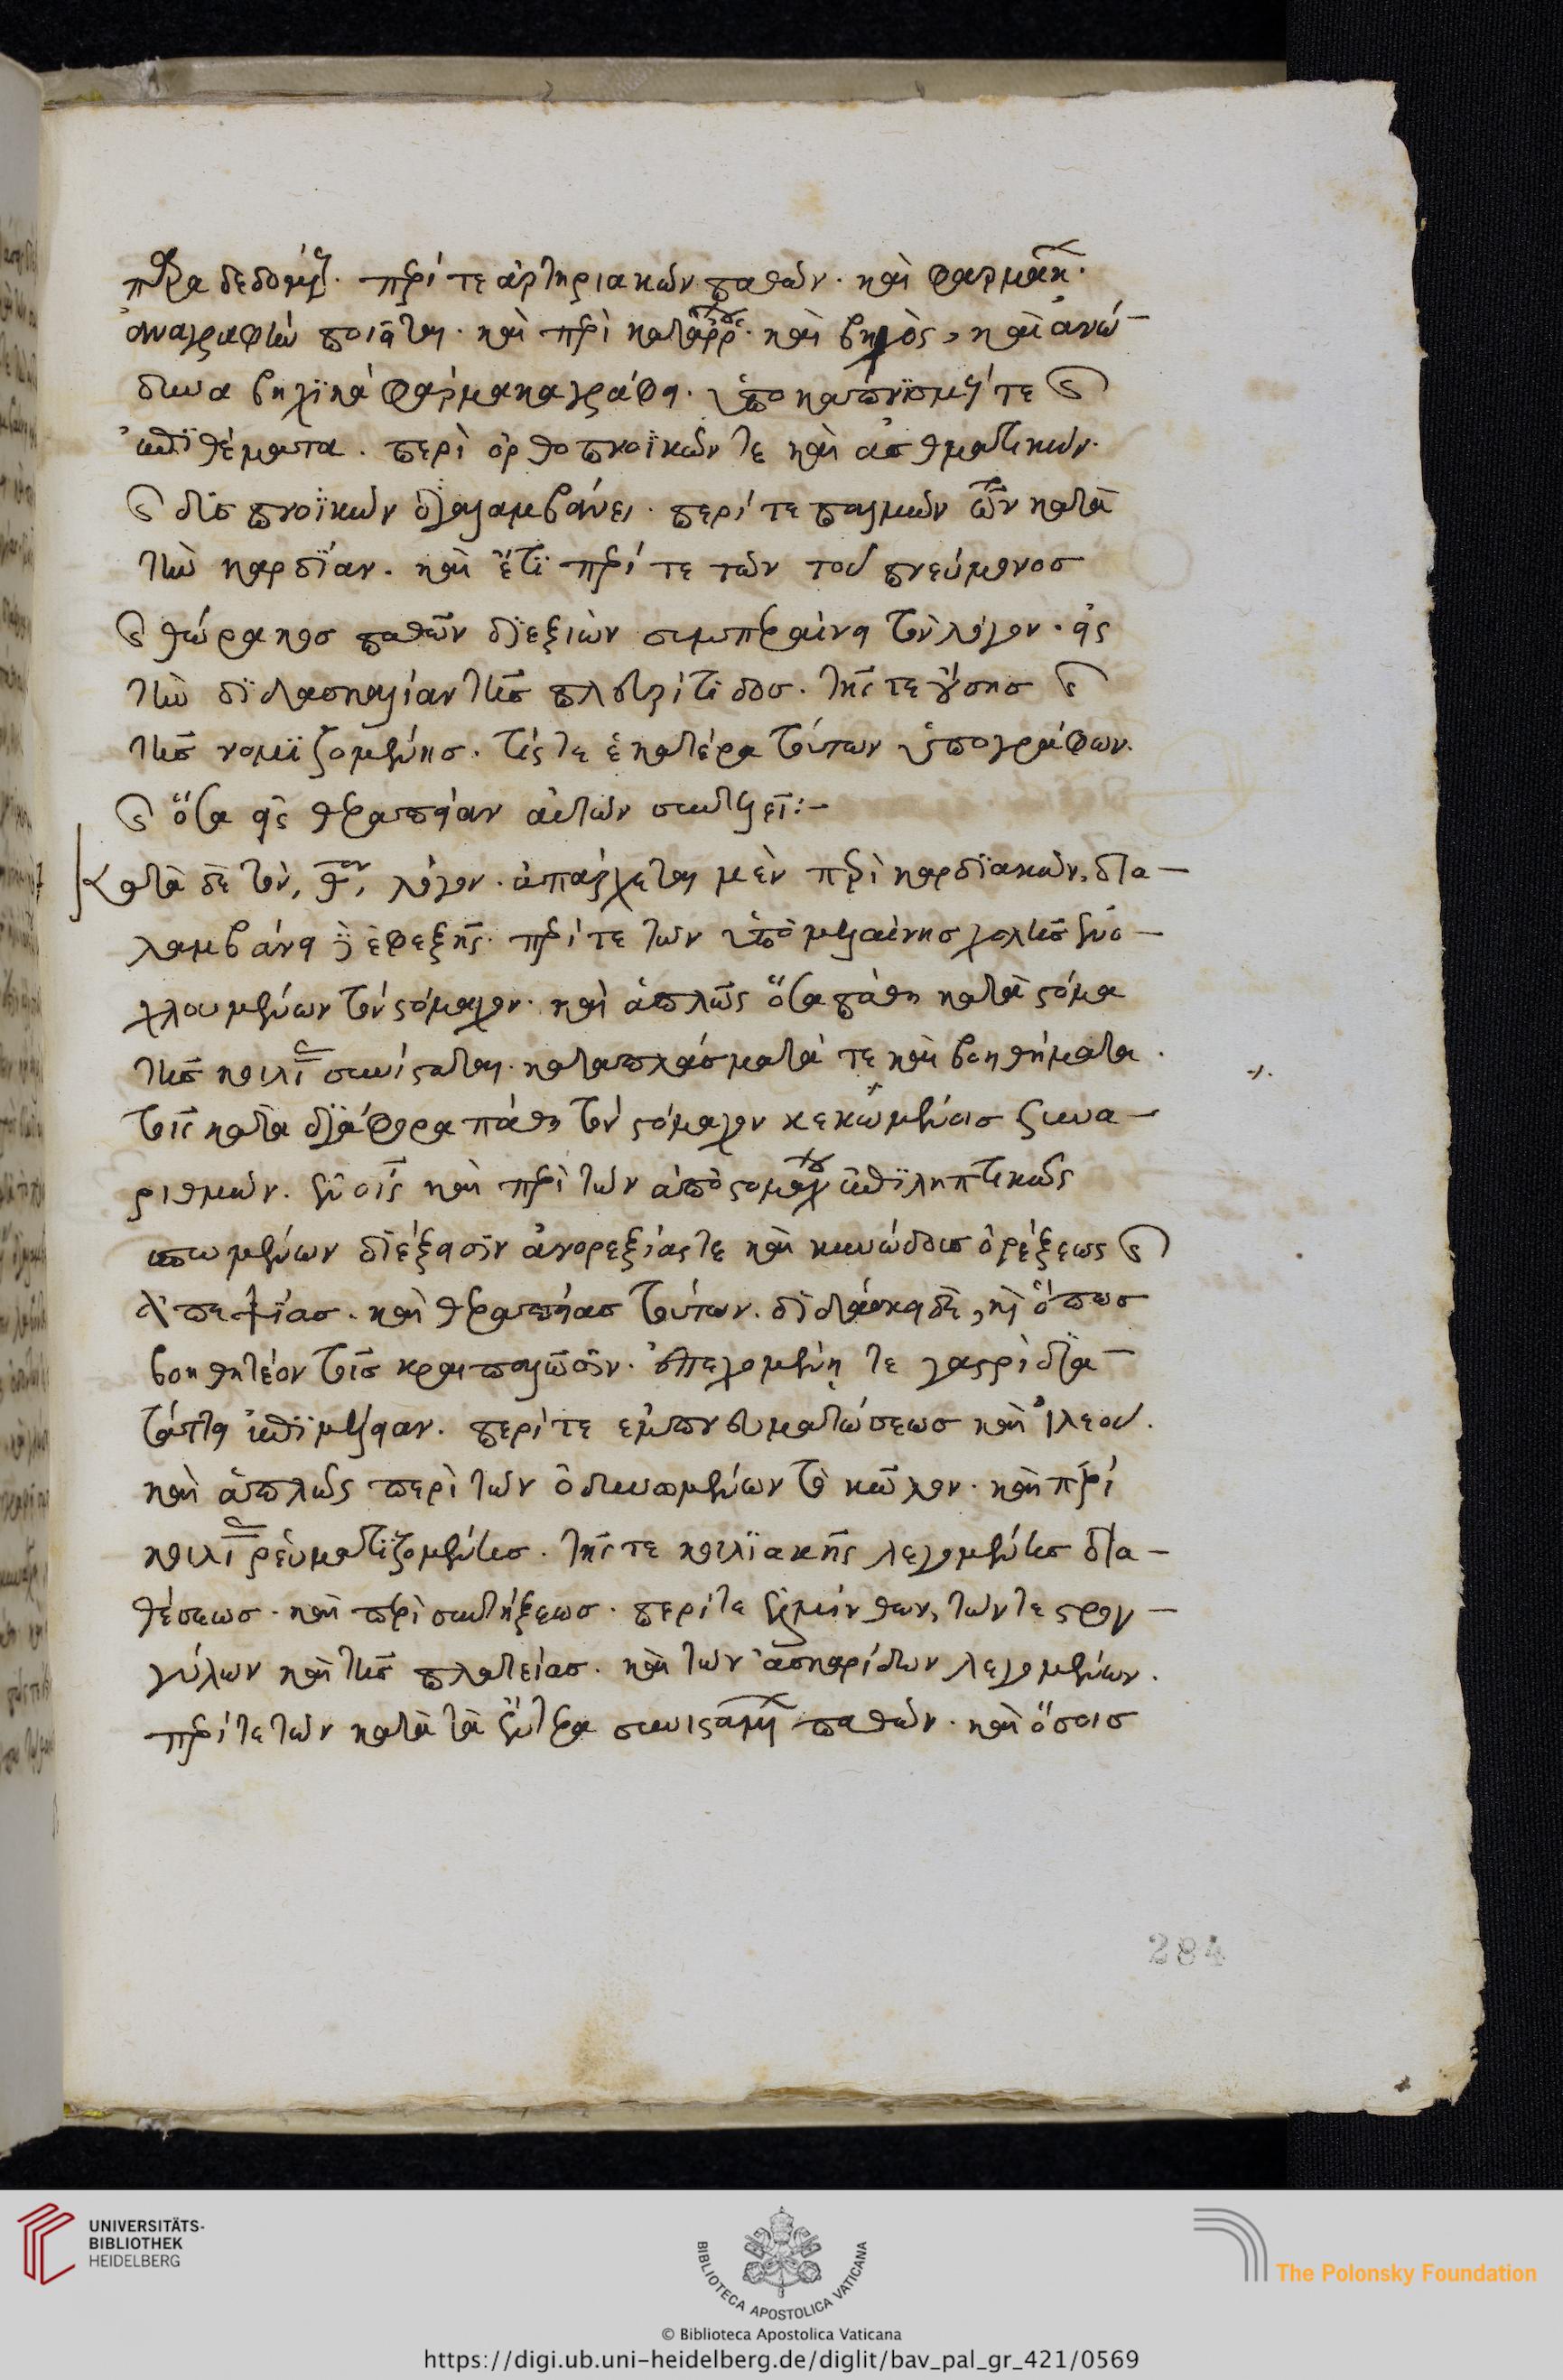 παραδεδομέν. περί τε ἀρτηριακῶν παθῶν. καὶ φαρμάκ.
ἀναγραφὴν ποιεῖται. καὶ περὶ κατάρρου. καὶ βηχὸς, καὶ ἀνώ-
δυνα βηχικὰ φάρμακα γράφει. ὑποκαπνισμούς τε καὶ
ἐπιθέματα. περὶ ὀρθοπνοϊκῶν τε καὶ ἀσθματικῶν.
καὶ δυσπνοϊκῶν διαλαμβάνει. περί τε παλμῶν τῶν κατὰ
τὴν καρδίαν. καὶ ἔτι περί τε τῶν τοῦ πνεύμονος
καὶ θώρακος παθῶν διεξιὼν συμπεραίνει τὸν λόγον. εἰς
τὴν διδασκαλίαν τῆς πλευρίτιδος. τῆς τε οὔσης καὶ
τῆς νομιζομένης. τίς τε ἑκατέρα τούτων ὑπογράφων.
καὶ ὅσα εἰς θεραπείαν αὐτῶν συντελεῖ:-
Κατὰ δὲ τὸν, θον, λόγον. ἀπάρχεται μὲν περὶ καρδιακῶν, δια-
λαμβάνει δὲ ἐφεξῆς. περί τε τῶν ὑπὸ μελαίνης χολῆς ἐνο-
χλουμένων τὸν στόμαχον. καὶ ἁπλῶς ὅσα πάθη κατὰ στόμα
τῆς κοιλίας συνίσταται. καταπλάσματά τε καὶ βοηθήματα.
τοῖς κατὰ διάφορα πάθη τὸν στόμαχον κεκακωμένοις συνα-
ριθμῶν. ἐν οἷς καὶ περὶ τῶν ἀπὸ στομάχου ἐπιληπτικῶς
σπωμένων διέξεισιν ἀνορεξίας τε καὶ κυνώδους ὀρέξεως καὶ
ἀπεψίας. καὶ θεραπείας τούτων. διδάσκει δὲ, καὶ ὅπως
βοηθητέον τοῖς κραιπαλῶσιν. ἐπεχομένῃ τε γαστρὶ δια-
τάττει ἐπιμέλειαν. περί τε ἐμπνευματώσεως καὶ εἰλεοῦ.
καὶ ἁπλῶς περὶ τῶν ὀδυνωμένων τὸ κῶλον. καὶ περὶ
κοιλίας ῥευματιζομένης. τῆς τε κοιλιακῆς λεγομένης δια-
θέσεως. καὶ περὶ συντήξεως. περί τε ἑλμίνθων, τῶν τε στρογ-
γύλων καὶ τῆς πλατείας. καὶ τῶν ἀσκαρίδων λεγομένων.
περί τε τῶν κατὰ τὰ ἔντερα συνισταμέν παθῶν. καὶ ὅσοις
284
UNIVERSITÄTS-
BIBLIOTHEK
HEIDELBERG
BIBLIOTECA APOSTOLICA VATICANA
The Polonsky Foundation
© Biblioteca Apostolica Vaticana
https://digi.ub.uni-heidelberg.de/diglit/bav_pal_gr_421/0569